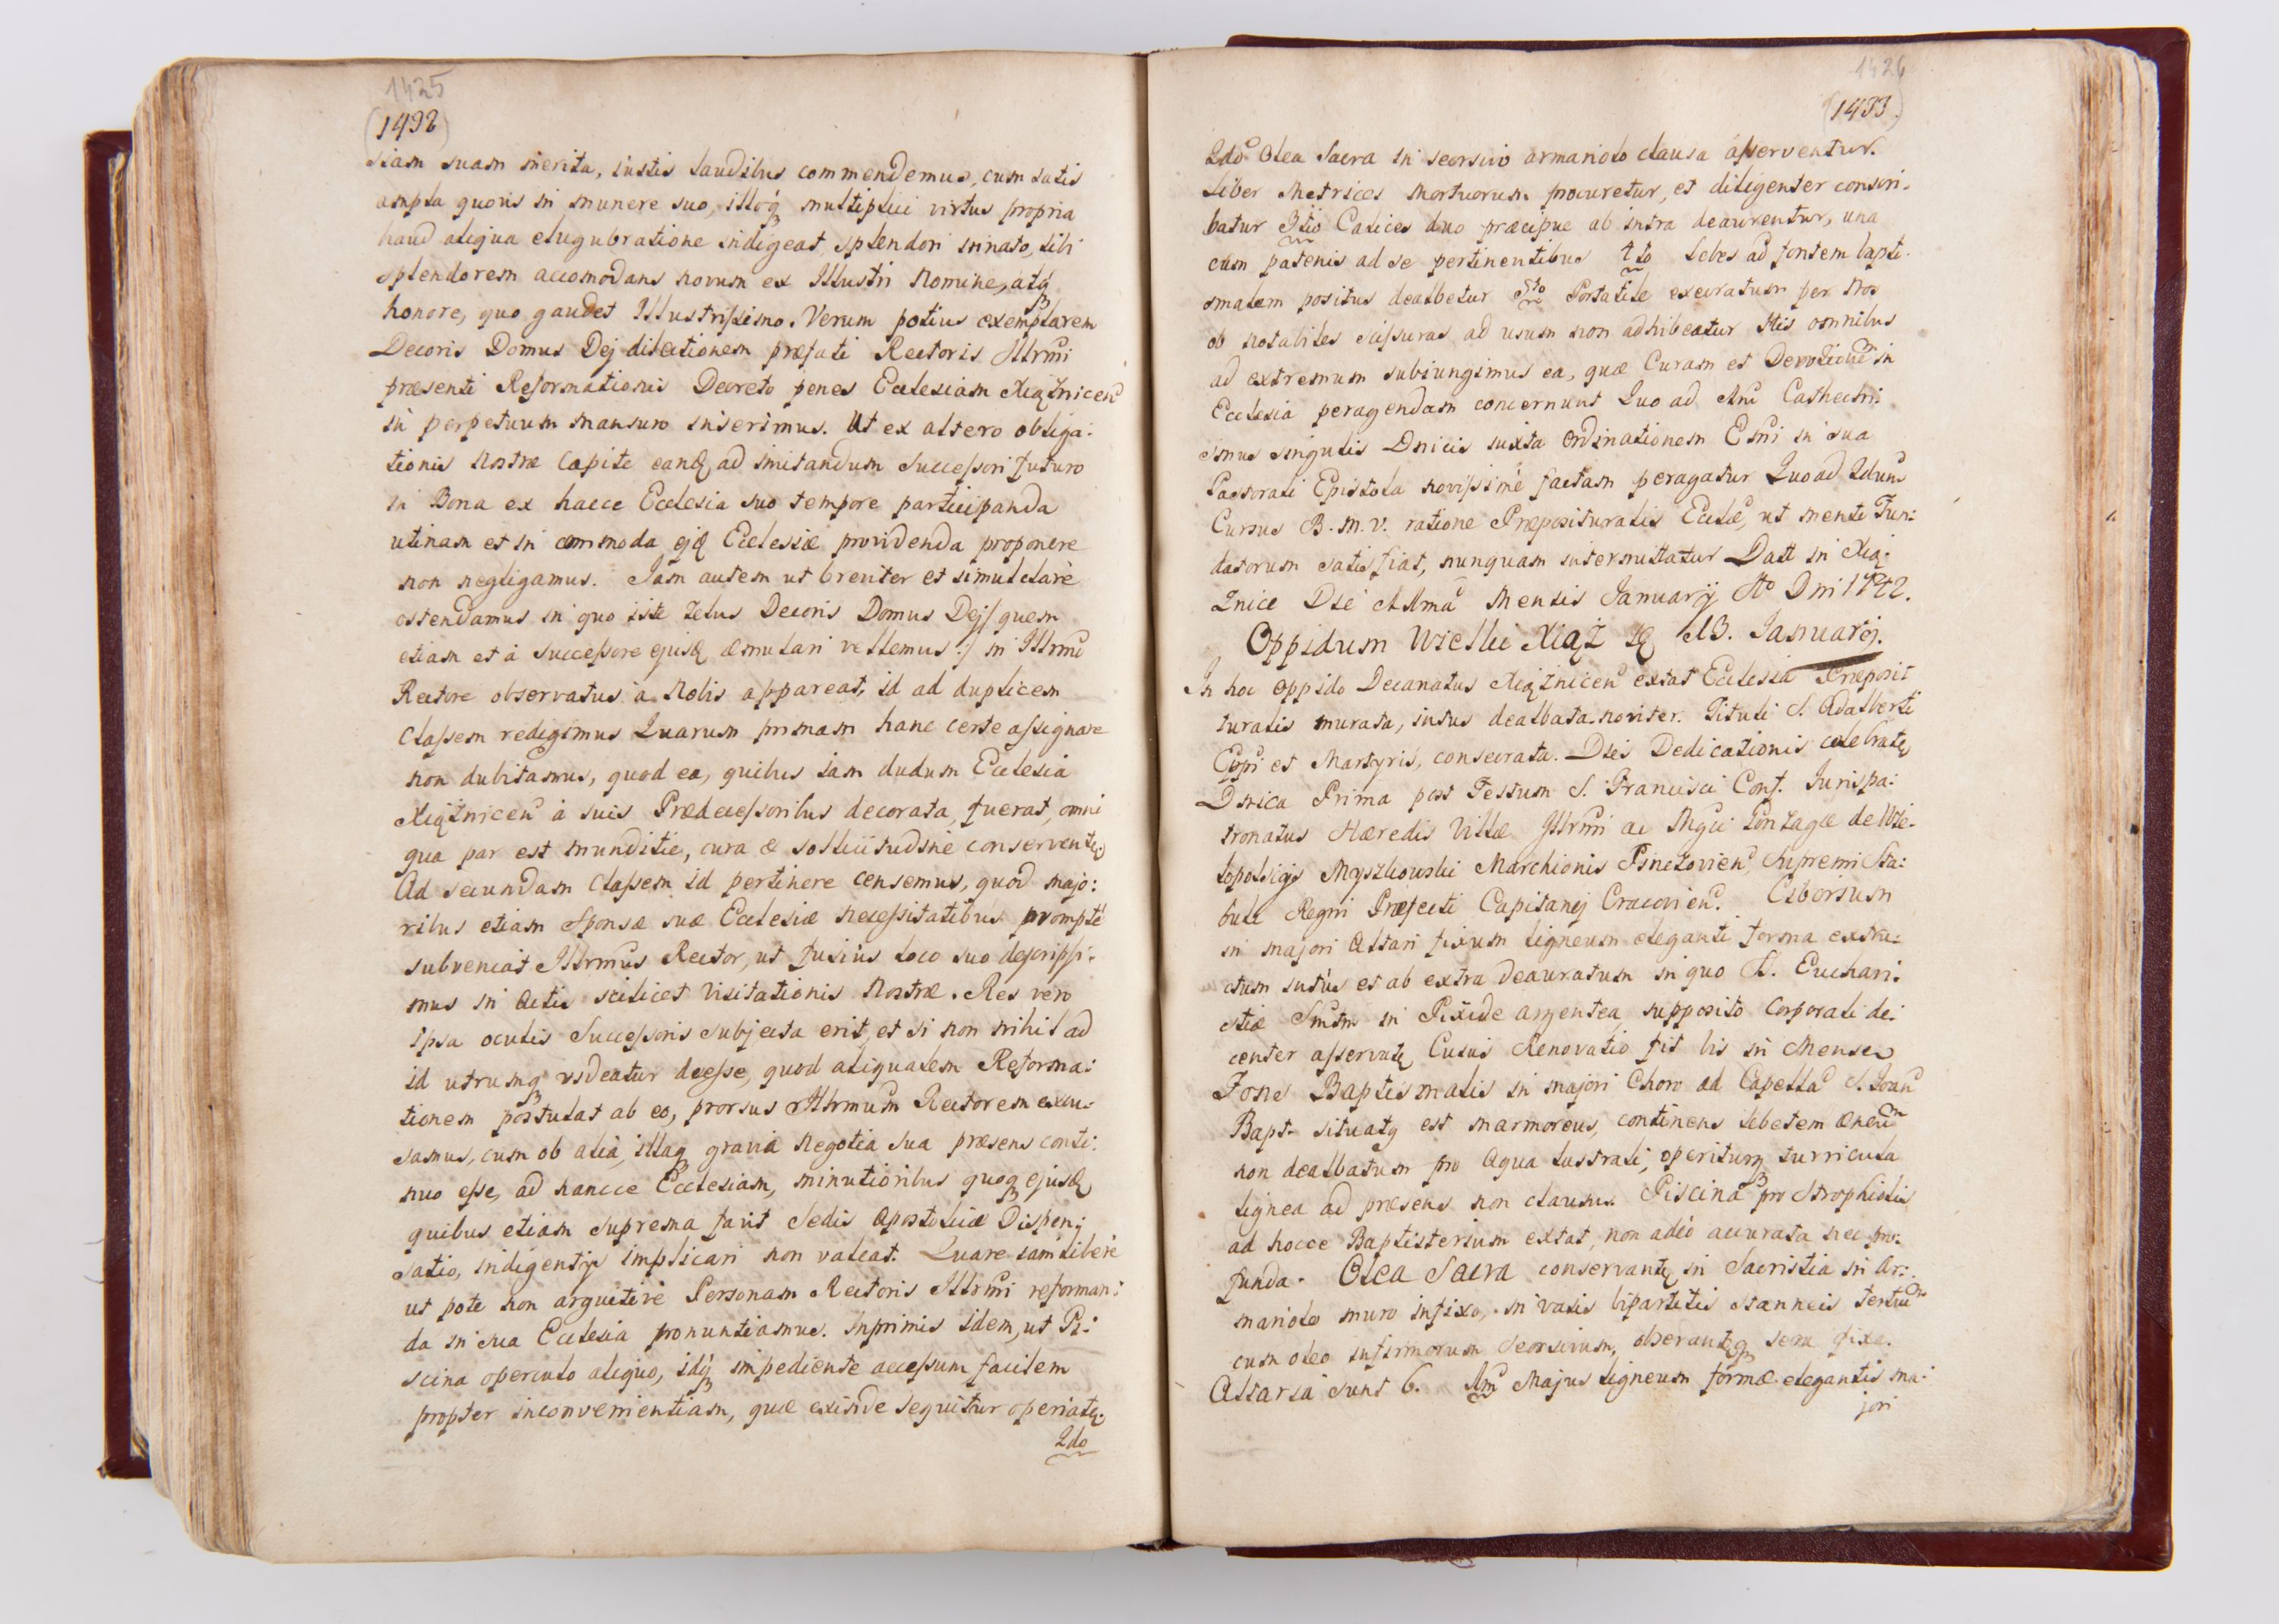 1425
(1432)
siam suam merita, iustis laudibus commendemus, cum satis
ampla quovis in munere suo, illoq; multiplici virtus propria
haud aliqua elugubratione indigeat, splendori innato, sibi
splendorem accomodans novum ex Illustri Nomine, atq;
honore, quo gaudet Illustrissimo. Verum potius exemplarem
Decoris Domus Dej dilectionem præfati Rectoris Illrmi
præsenti Reformationis Decreto penes Ecclesiam Xiążnicen
in perpetuum mansuro inserimus. Ut ex altero obliga:
tionis Nostræ capite eandq ad imitandum Successori futuro
in Bona ex hacce Ecclesia suo tempore participanda
utinam et in commoda ejq Ecclesiæ providenda proponere
non negligamus. Jam autem ut breviter et simul clarè
ostendamus in quo iste Zelus Decoris Domus Dej /: quem
etiam et à Successore ejusq æmulari vellemus :/ in Illrmo
Rectore observatus à Nobis appareat, id ad duplicem
Classem redigimus Quarum primam hanc certe assignare
non dubitamus, quod ea, quibus iam dudum Ecclesia
Xiążnicen à suis Prædecessoribus decorata fuerat, omni
qua par est munditie, cura & sollicitudine conserventq.
Ad secundam Classem id pertinere censemus, quod majo:
ribus etiam Sponsæ suæ Ecclesiæ necessitatibus promptè
subveniat Illrmus Rector, ut fusiùs loco suo descripsi:
mus in Actis scilicet Visitationis Nostræ. Res vero
ipsa oculis Successoris subjecta erit, et si non nihil ad
id utrumq; videatur deesse, quod aliqualem Reforma:
tionem postulat ab eo, prorsus Illrmum Rectorem excu:
samus, cum ob alia, illaq; gravia negotia sua præsens conti:
nuo esse, ad hancce Ecclesiam, minutioribus quoq; ejusq
quibus etiam suprema favit Sedis Apostolicæ Dispen:
satio, indigentijs implicari non valeat. Quare iam liberè
ut pote non arguitivè Personam Rectoris Illrmi reforman:
da in sua Ecclesia pronuntiamus. Inprimis idem, ut Pi:
scina operculo aliquo, idq; impediente accessum facilem
propter inconvenientiam, quæ exinde sequitur operiatq.
2do
1426
(1433.)
2do Olea Sacra in seorsivo armariolo clausa asserventur.
Liber Metrices Mortuorum procuretur, et diligenter conscri:
batur 3tio Calices duo præcipue ab intra deaurentur, una
cum patenis ad se pertinentibus 4to Lebes ad fontem bapti:
smalem positus dealbetur 5to Portatile execratum per Nos
ob notabiles scissuras ad usum non adhibeatur His omnibus
ad extremum subiungimus ea, quæ Curam et Devotionem in
Ecclesia peragendam concernunt Quo ad Imu Cathechi:
smus singulis Dnicis iuxta Ordinationem Emi in sua
Pastorali Epistola novissimè factam peragatur Quo ad 2dum
Cursus B. M. V. ratione Præposituralis Ecclæ, ut menti Fun:
datorum satisfiat, nunquam intermittatur Datt in Xią:
żnice Die XIma Mensis Januarij Ao Dni 1742.
Oppidum Wielkie Xiąż 13. Januarij.
In hoc oppido Decanatus Xiążnicen extat Ecclesia Præposit
turalis murata, intus dealbata noviter. Tituli S. Adalberti
Eppi et Martyris, consecrata. Dies Dedicationis celebratq
Dnica Prima post Festum S. Francisci Conf. Jurispa:
tronatus Hæredis Villæ Illrmi ac Mgci Gonzagæ de Wie:
lopolscijs Myszkowski Marchionis Pinczovien, Supremi Sta:
buli Regni Præfecti Capitanej Cracovien. Ciborium
in majori Altari fixum ligneum eleganti forma extru:
ctum intùs et ab extra deauratum in quo SS. Euchari:
stiæ Smtm in Pixide argentea, supposito Corporali de:
center asservatq Cuius Renovatio fit bis in Mense
Fons Baptismalis in majori Choro ad Capella S. Joan
Bapt. situatq est marmoreus, continens lebetem æneum
non dealbatum pro Aqua lustrali, operiturq; turricula
lignea ad præsens non clausus. Piscina pro Strophiolis
ad hocce Baptisterium extat, non adeò accurata nec pro:
funda. Olea Sacra conservantq in Sacristia in Ar:
mariolo muro infixo, in vasis bipartitis stanneis tertium
cum oleo infirmorum seorsivum, obserantqq; sera fixa.
Altaria sunt 6. Imu Majus ligneum formæ elegantis ma:
jori